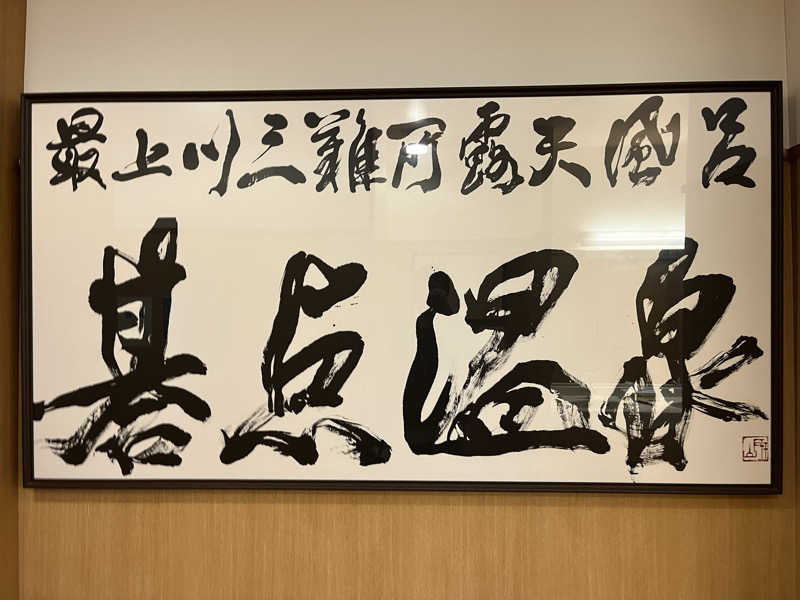 最上川三難所露天風呂
碁点温泉